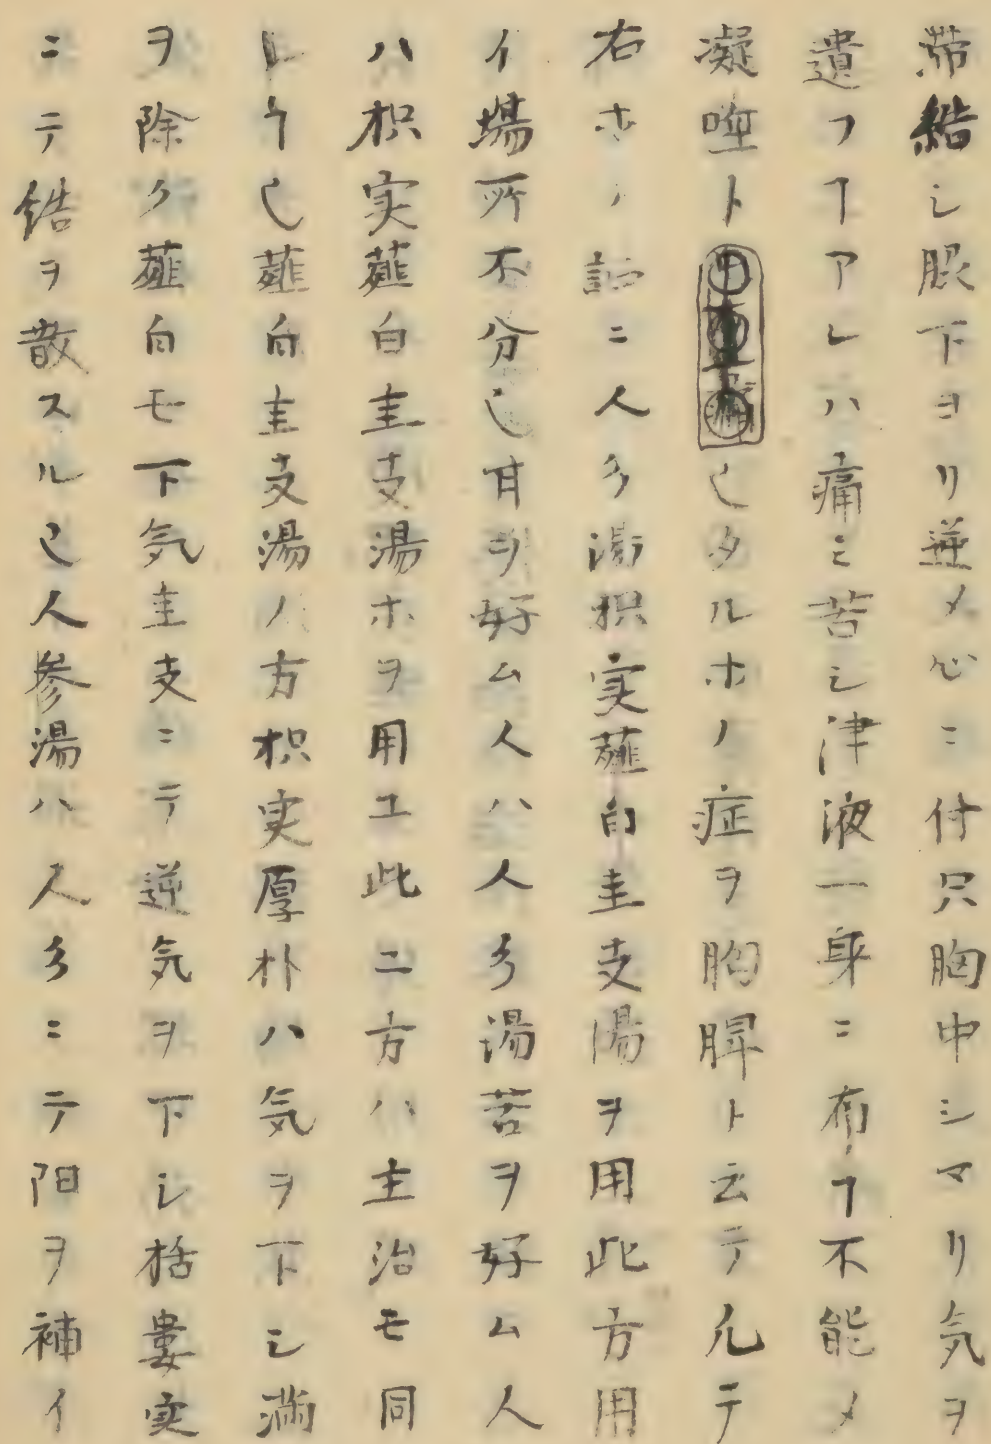 帯結シ脹下ヨリ逆メ心ニ付只胸中シマリ気ヲ
遺フヿアレハ痛ミ苦シ津液一身ニ布フヿ不能メ
凝唖トシタルホノ症ヲ胸脾ト云テ凡テ
右ホノ証ニ人多湯枳実薤白圭支湯ヲ用此方用
イ場所不分已甘ヲ好ム人ハ人多湯苦ヲ好ム人
ハ枳実薤白圭支湯ホヲ用ユ此二方ハ主治モ同
薤白圭支湯ノ方枳実厚朴ハ気ヲ下シ満
ヲ除ク薤白モ下気圭支ニテ逆気ヲ下シ栝婁実
ニテ結ヲ散スル已人参湯ハ人多ニテ陽ヲ補イ